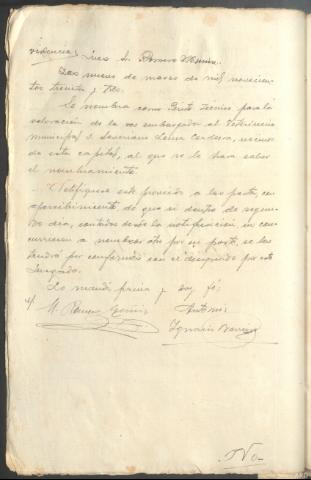 videncia; Juez Sr. Romero
Das nueve de marzo de mil novecien-
tos treinta y tres.
Se nombra como Perito tecnico para la
valoración de la embargado al Veterinario
municipal D. Severiano Lema Cerdeira, vecino
de esta capital, al que se le hará saber
el nombramiento.
Notifíquese este proveido a las partes, con
apercibimiento de que si dentro de segun-
do día, contados desde la notificación no con-
curriesen a nombrar otro por su parte, se les
tendrá por conformes con el designado por este
Juzgado.
Lo mandó, firma y doy fé;
M. Romero Antemi
Ignacio
No-